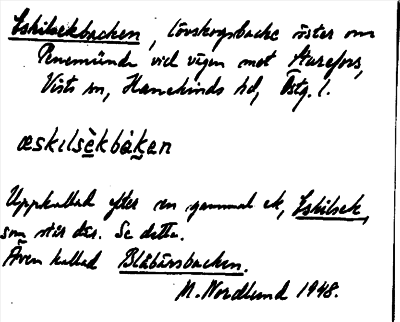 Eskilsekbacken, lövskogsbacke öster om
Penemünde vid vägen mot Sturefors,
Vists sn, Hanekinds hd, Östg. l.
æskılsèkbàkan
Uppkallad efter en gammal ek, Eskilsek,
som står där. Se detta.
Även kallad Blåbärsbacken.
N. Nordlund 1948.